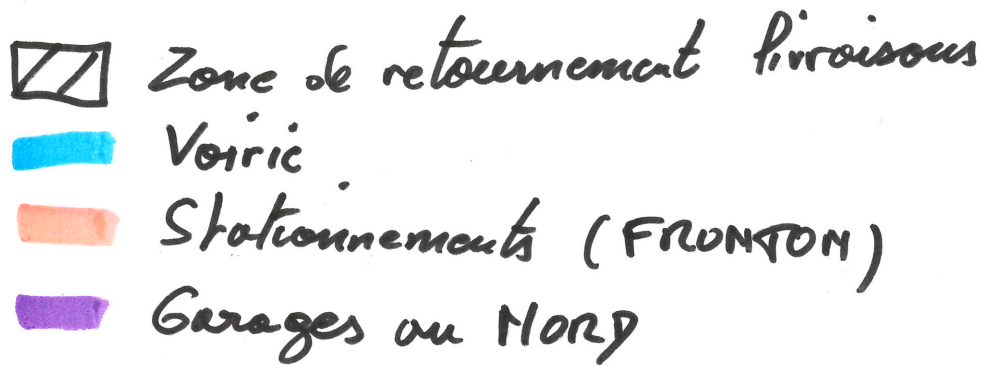 Zone de retournement livraisons
Voirie
Stationnements (FRONTON)
Garages au NORD